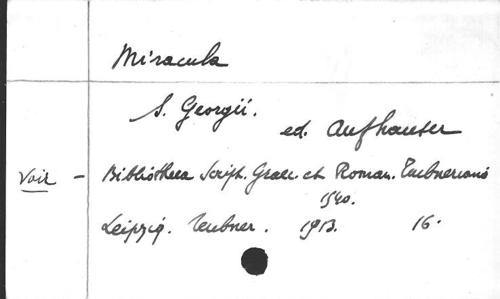 Miracula
S. Georgii.
ed. Aufhauser
Voir - Bibliotheca Script. Graec. et Roman. Teubneriana
1540.
Leipzig. Teubner. 1913. 16.